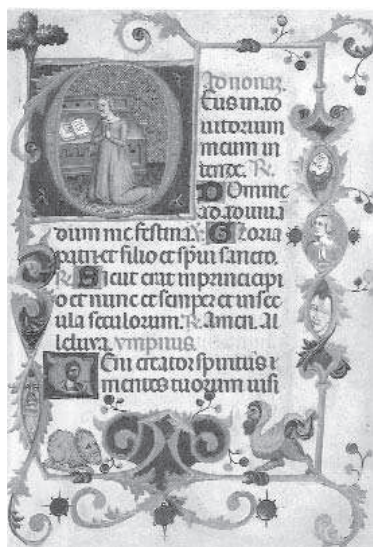 Ad nonaz.
DEus in ad
iutorium
meum in
tende. R.
Domine
ad adiuua
dium me festina. R. Gloria
patri et filio et spui sancto.
R. Sicut erat in principi
o et nunc et semper et in sec
ula seculorum. R. Amen. Al
leluya. ympnus.
VEni creator spiritus
mentes tuorum uisi